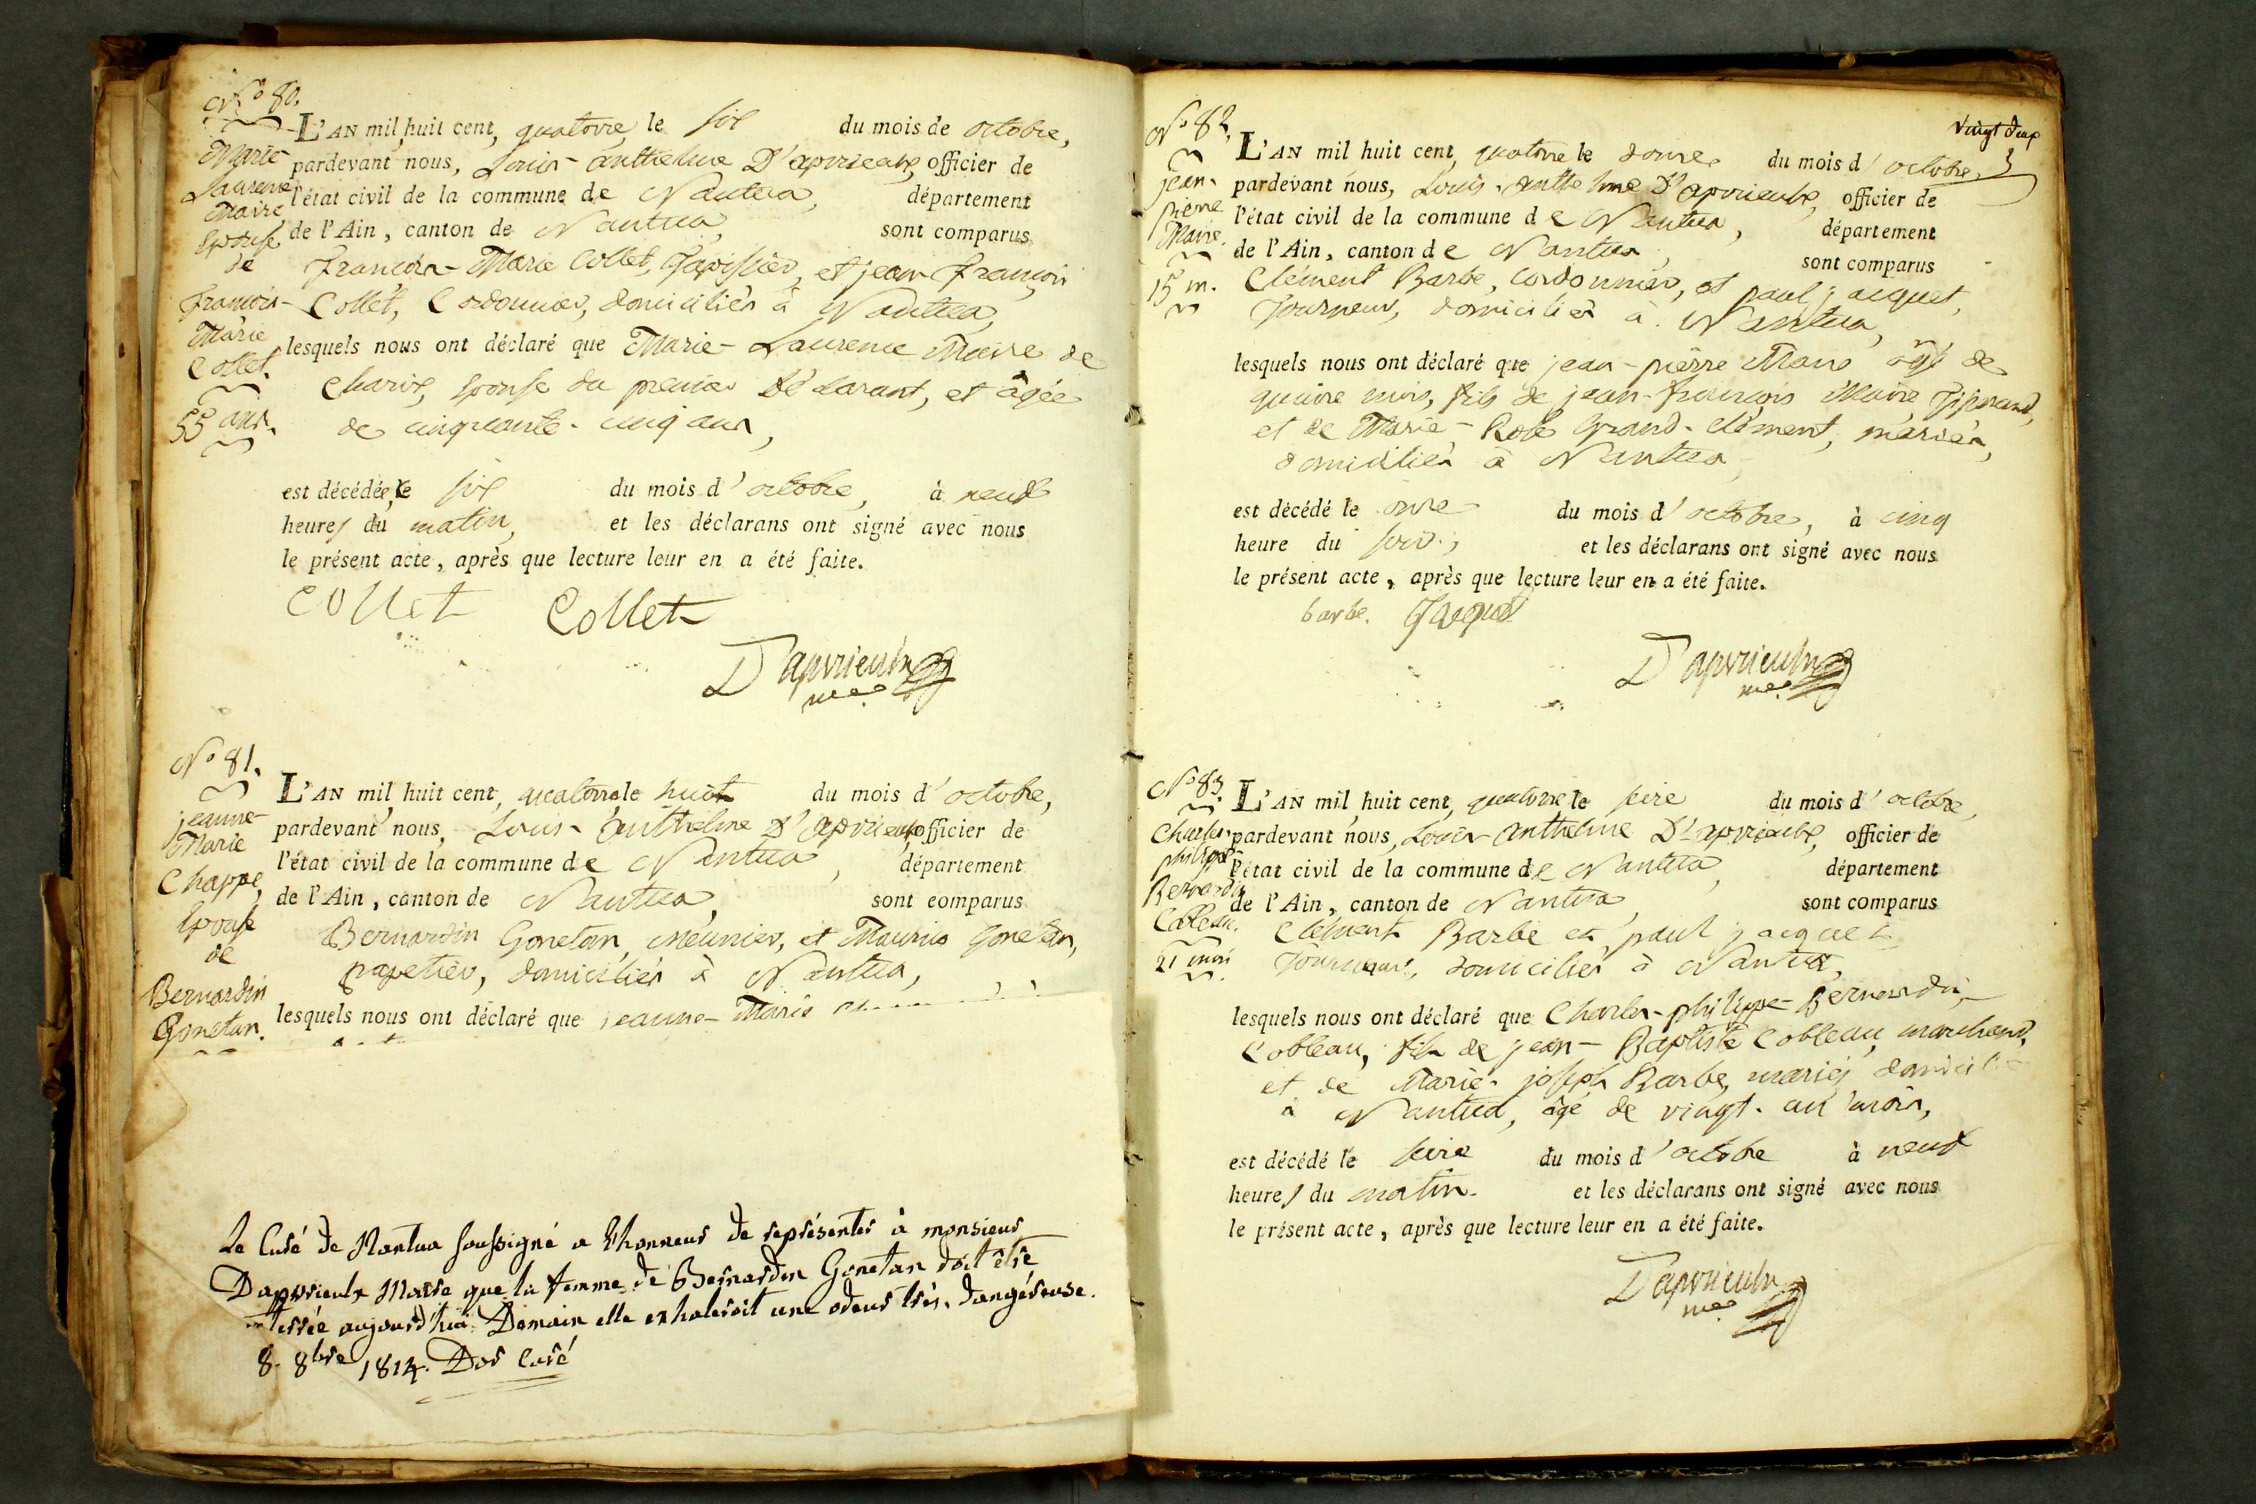 N.° 80.
Marie
Laurence
Maire
Epouse
de
françois-
Marie
Collet.
55 ans.
L'AN mil huit cent, quatorze le six du mois de octobre,
pardevant nous, Louis-anthelme D'apvrieulx, officier de
l'état civil de la commune de Nantua, département
de l'Ain, canton de Nantua, sont comparus
françois-Marie Collet, Tapissier, et jean françois
Collet, Cordonnier, domiciliés à Nantua,
lesquels nous ont déclaré que Marie-Laurence Maire de
Charix, Epouse du premier Déclarant, et âgée
de cinquante-cinq ans,
est décédée, le six du mois d'octobre, à neuf
heures du matin, et les déclarans ont signé avec nous
le présent acte, après que lecture leur en a été faite.
Collet Collet
D'apvrieulx
me.
N.° 81.
jeanne-
Marie
Chappe,
Epouse
de
Bernardin
Gonetan.
L'AN mil huit cent, quatorze le huit du mois d'octobre,
pardevant nous, Louis-anthelme D'apvrieulx officier de
l'état civil de la commune de Nantua, département
de l'Ain, canton de Nantua, sont comparus
Bernardin Gonetan, Meunier, et Maurice Gonetan,
papetier, domiciliés à Nantua,
lesquels nous ont déclaré que jeanne-Marie
Le Curé de Nantua soussigné a l'honneur de représenter à monsieur
Dapvrieulx Maire que la femme de Bernardin Gonetan doit être
enterrée aujourd'hui. Demain elle exhaleroit une odeur très-dangéreuse.
8. 8bre 1814. Dor Curé
vingt deux
N.° 82.
jean-
pierre
Maire.
15 m.
L'AN mil huit cent, quatorze le douze du mois d'octobre,
pardevant nous, Louis-anthelme D'apvrieulx, officier de
l'état civil de la commune de Nantua, département
de l'Ain, canton de Nantua, sont comparus
Clément Barbe, Cordonnier, et paul jacquet,
Tourneur, domiciliés à Nantua,
lesquels nous ont déclaré que jean-pierre Maire âgé de
quinze mois, fils de jean-françois Maire Tisserand,
et de Marie-Rose Grand-clément, mariés,
domiciliés à Nantua
est décédé le onze du mois d'octobre, à cinq
heure du soir, et les déclarans ont signé avec nous
le présent acte, après que lecture leur en a été faite.
barbe. Jacquet
D'apvrieulx
me.
N.° 83.
Charles-
philippe-
Bernardin
Cobleau.
21 mois
L'AN mil huit cent, quatorze le seize du mois d'octobre,
pardevant nous, Louis-anthelme D'apvrieulx, officier de
l'état civil de la commune de Nantua, département
de l'Ain, canton de Nantua, sont comparus
Clément Barbe et paul jacquet
Tourneur, domiciliés à Nantua,
lesquels nous ont déclaré que Charles-philippe-Bernardin
Cobleau, fils de jean-Baptiste Cobleau, marchand,
et de Marie-joseph Barbe, mariés domiciliés
à Nantua, âgé de vingt-un mois,
est décédé le seize du mois d'octobre à neuf
heures du matin. et les déclarans ont signé avec nous
le présent acte, après que lecture leur en a été faite.
D'apvrieulx
me.